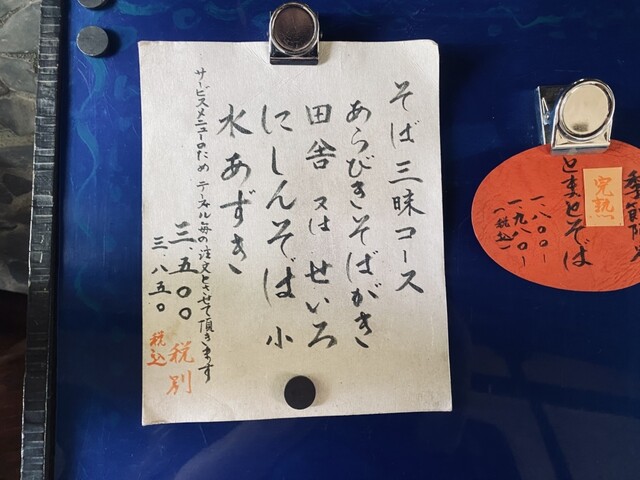 そば三昧コース
あらびきそばがき
田舎 又は せいろ
にしんそば 小
水あずき
サービスメニューのため テーブル毎の注文とさせて頂きます
三、五〇〇 税別
三、八五〇 税込
完熟
とまとそば
一、八〇〇-
一、九八〇-
(税込)